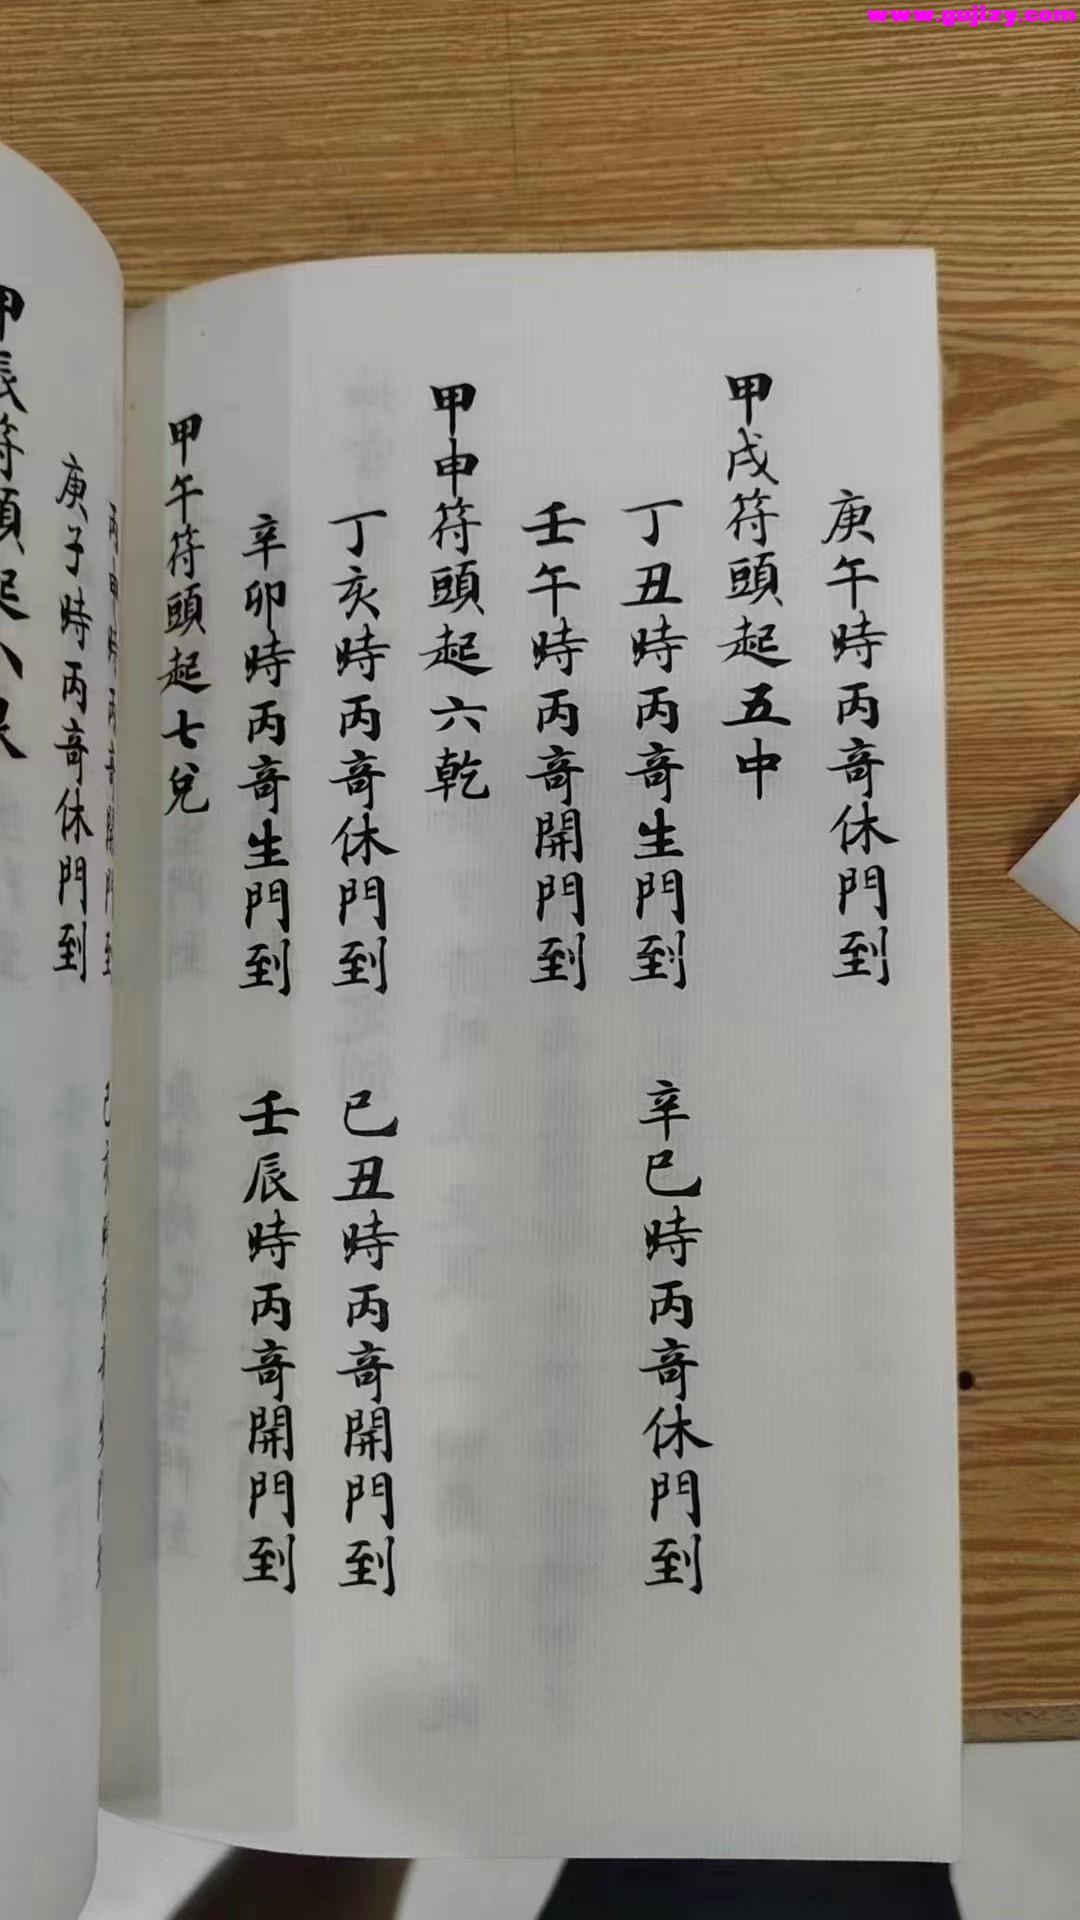 www.gujizy.com
庚午時丙奇休門到
甲戌符頭起五中
丁丑時丙奇生門到 辛巳時丙奇休門到
壬午時丙奇開門到
甲申符頭起六乾
丁亥時丙奇休門到 己丑時丙奇開門到
辛卯時丙奇生門到 壬辰時丙奇開門到
甲午符頭起七兌
丙申時丙奇開門到
庚子時丙奇休門到
甲辰符頭起八艮